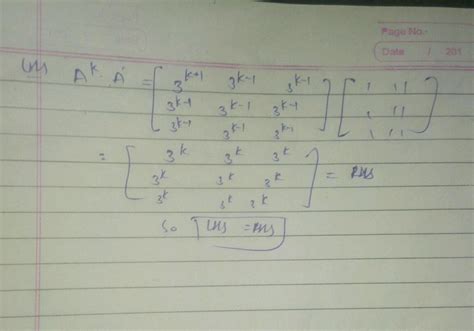 Page No.
Date / 201
LHS A^k . A' = [ 3^k+1 3^k-1 3^k-1 ] [ 1 1 1 ]
3^k-1 3^k-1 3^k-1 1 1 1
3^k-1 3^k-1 3^k-1 1 1 1
= [ 3^k 3^k 3^k ] = RHS
3^k 3^k 3^k
3^k 3^k 3^k
So LHS = RHS